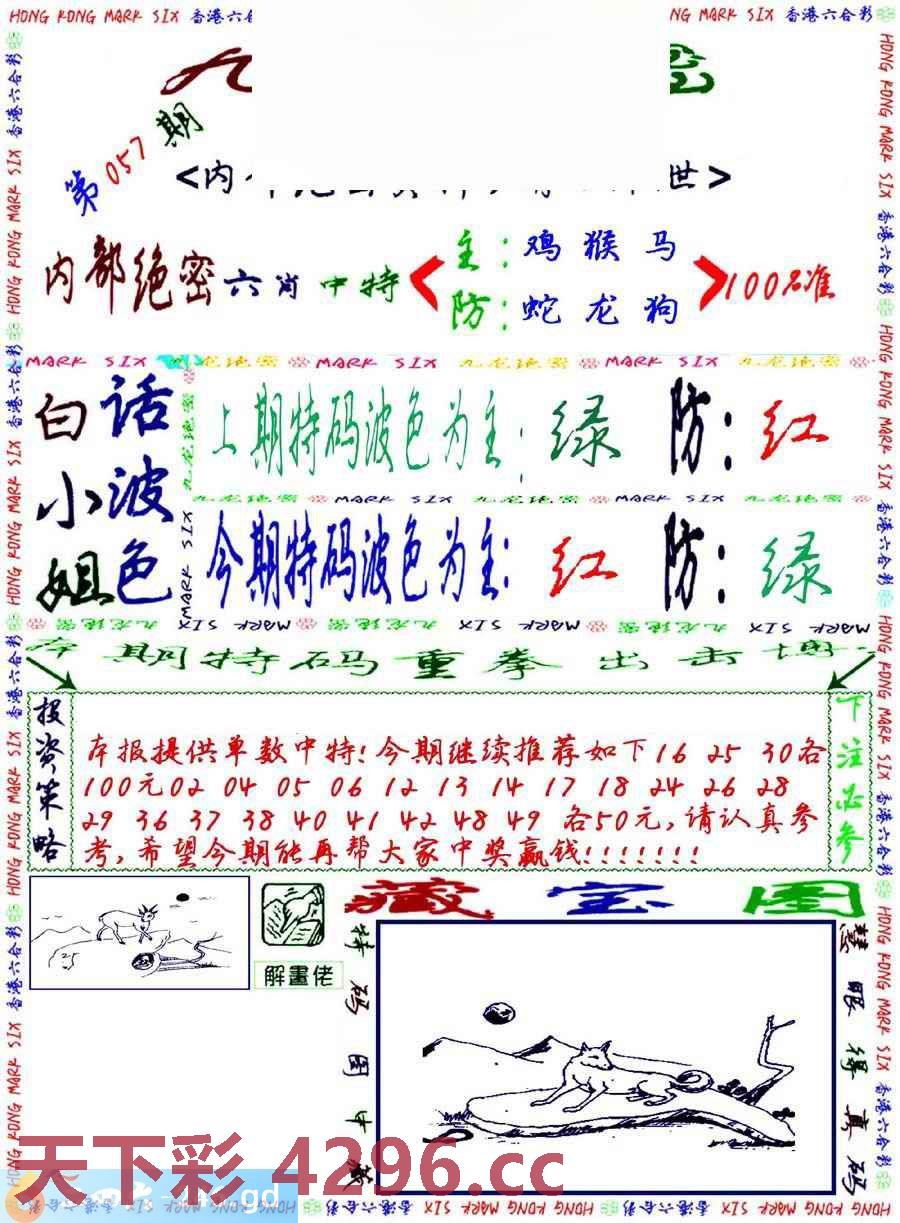 HONG KONG MARK SIX 香港六合彩
第057期
<内
世>
内部绝密六肖中特
主:鸡猴马
防:蛇龙狗
100%准
MARK SIX 九龙绝密 MARK SIX 九龙绝密 MARK SIX 九龙绝密
白小姐
话波色
上期特码波色为主:绿 防:红
九龙绝密 MARK SIX 九龙绝密 MARK SIX 九龙绝密
今期特码波色为主:红 防:绿
九龙绝密 MARK SIX 九龙绝密 MARK SIX 九龙绝密 MARK SIX
本期特码重拳出击
投资策略
本报提供单数中特!今期继续推荐如下16 25 30各
100元02 04 05 06 12 13 14 17 18 24 26 28
29 36 37 38 40 41 42 48 49 各50元,请认真参
考,希望今期能再帮大家中奖赢钱!!!!!!!
下注必参
藏宝图
解畫佬
特码图中藏
慧眼得真码
天下彩4296.cc
gd